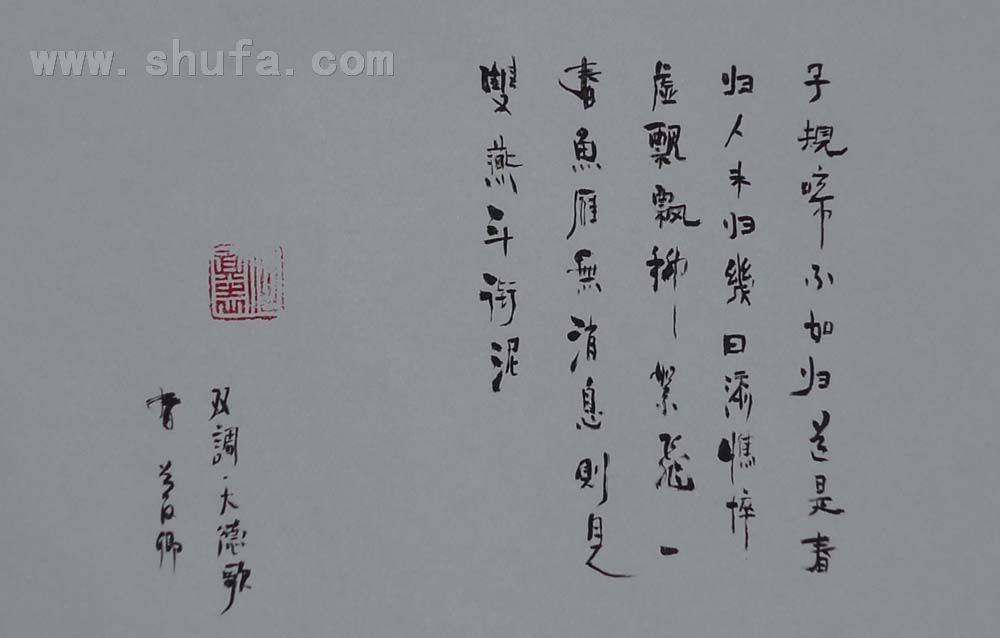 www.shufa.com
子規啼不如归道是春
归人未归幾日添憔悴
虚飄飄柳絮飛一
春魚雁無消息則見
雙燕斗衔泥
双調·大德歌
春 卿